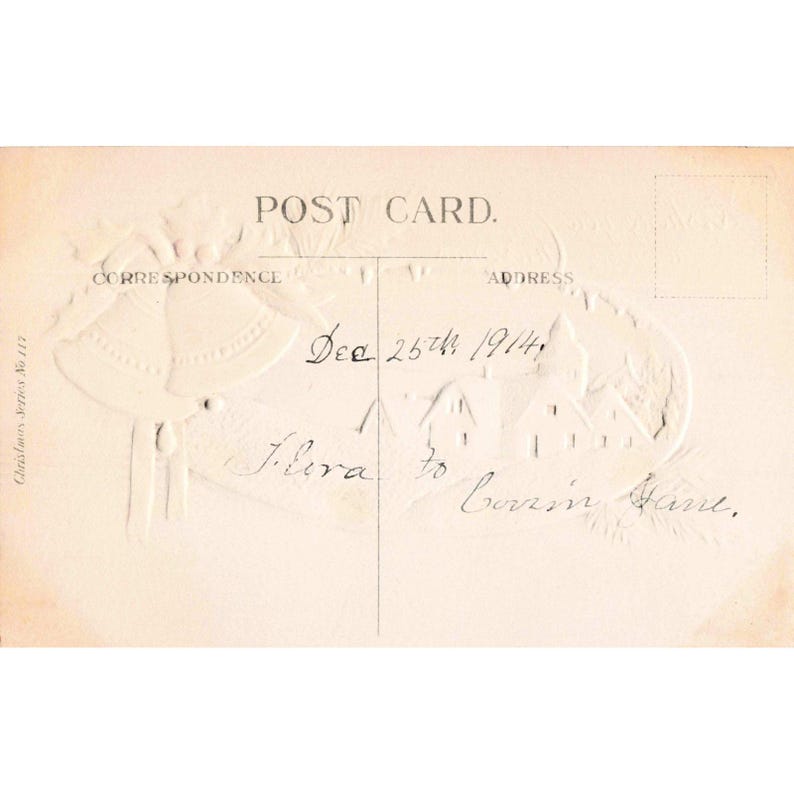 POST CARD.
CORRESPONDENCE
ADDRESS
Dec 25th, 1914,
Flora to
Cousin Jane.
Christmas Series No 117